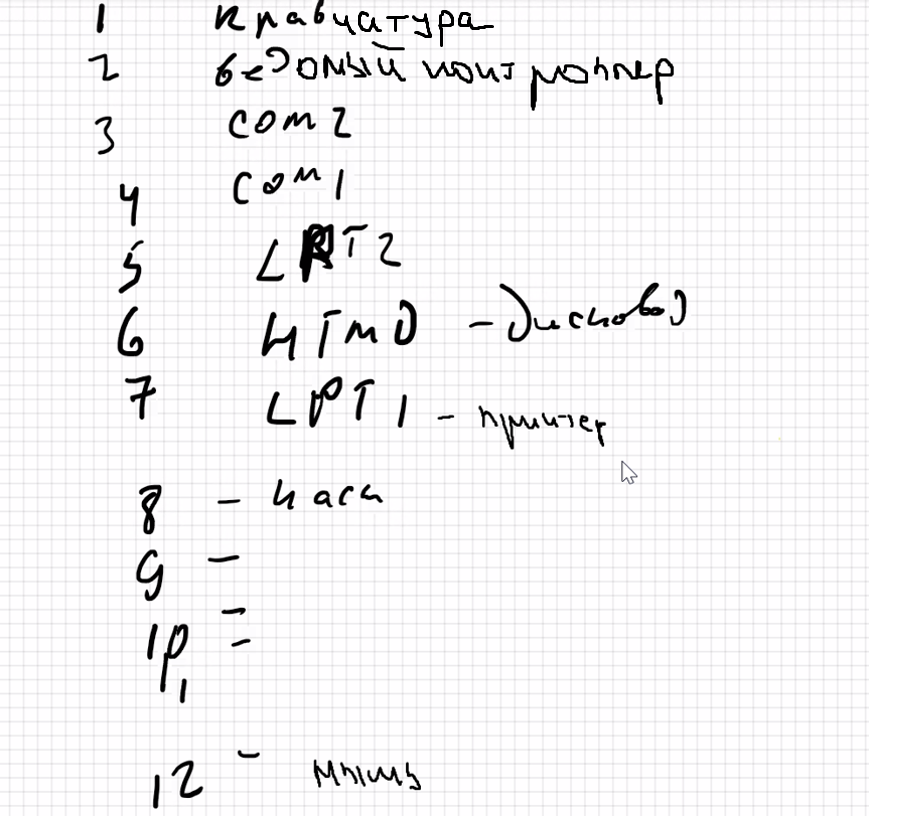 1 клавиатура
2 ведомый контроллер
3 COM 2
4 COM 1
5 LPT 2
6 НГМД - дисковод
7 LPT 1 - принтер
8 - часы
9 -
10 -
11 -
12 - мышь